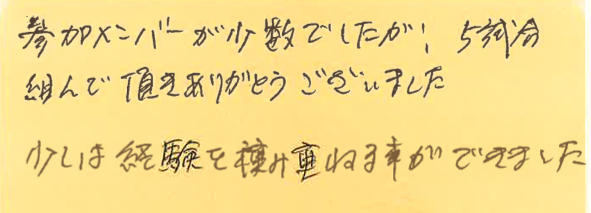 参加メンバーが少数でしたが、5試合
組んで頂きありがとうございました
少しは経験を積み重ねる事ができました